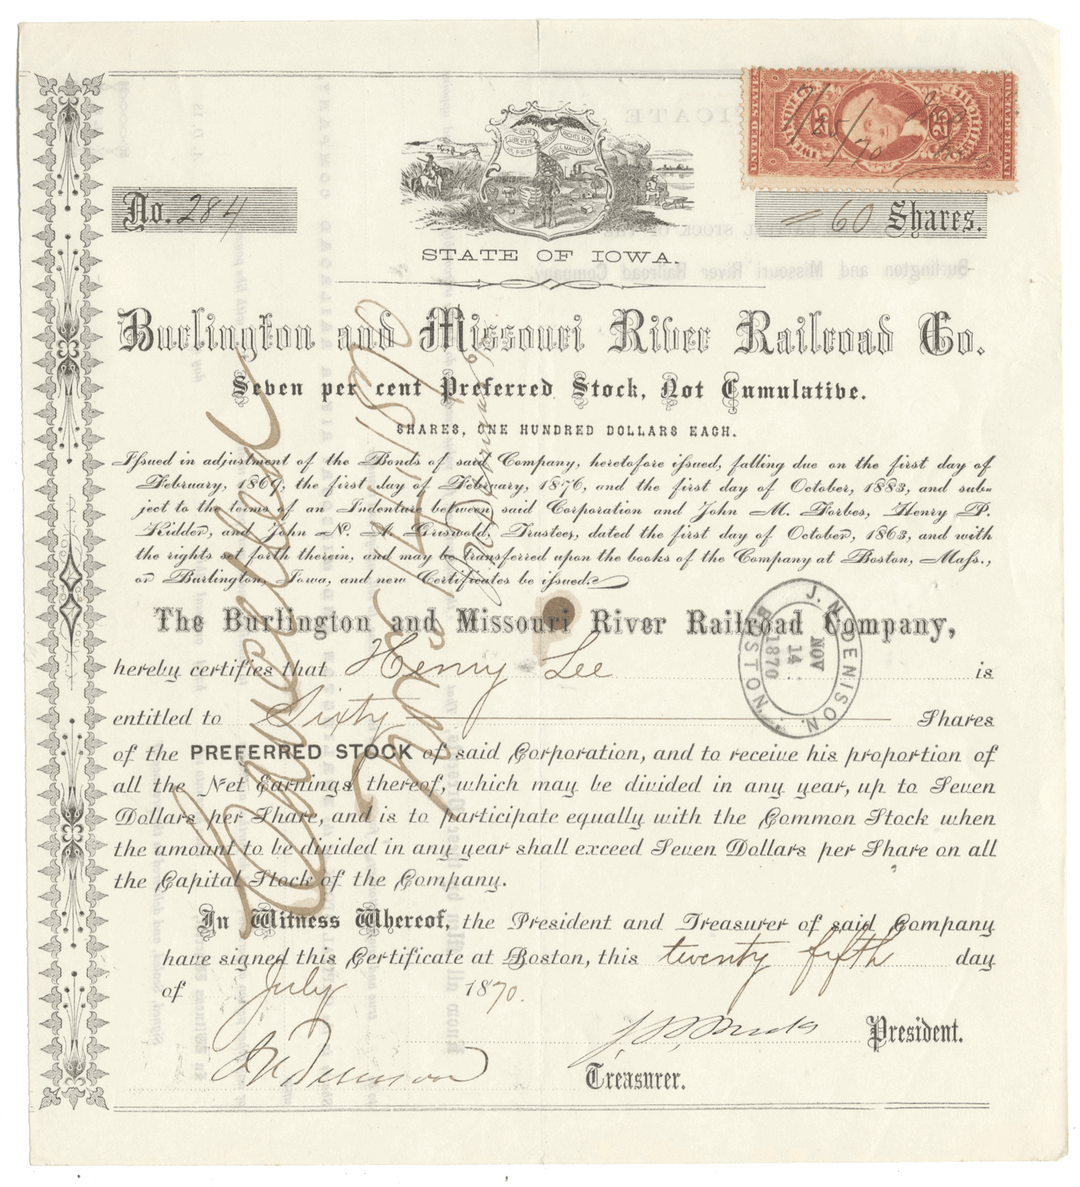 UNITED STATES
INTER. REVENUE
25
No. 284
60 Shares.
STATE OF IOWA.
Burlington and Missouri River Railroad Co.
Seven per cent Preferred Stock, Not Cumulative.
SHARES, ONE HUNDRED DOLLARS EACH.
Issued in adjustment of the Bonds of said Company, heretofore issued, falling due on the first day of
February, 1869, the first day of February, 1876, and the first day of October, 1883, and sub-
ject to the terms of an Indenture between said Corporation and John M. Forbes, Henry P.
Kidder, and John N. A. Griswold, Trustees, dated the first day of October, 1863, and with
the rights set forth therein, and may be transferred upon the books of the Company at Boston, Mass.,
or Burlington, Iowa, and new Certificates be issued.
The Burlington and Missouri River Railroad Company,
hereby certifies that Henry Lee is
entitled to Sixty Shares
of the PREFERRED STOCK of said Corporation, and to receive his proportion of
all the Net Earnings thereof, which may be divided in any year, up to Seven
Dollars per Share, and is to participate equally with the Common Stock when
the amount to be divided in any year shall exceed Seven Dollars per Share on all
the Capital Stock of the Company.
In Witness Whereof, the President and Treasurer of said Company
have signed this Certificate at Boston, this twenty fifth day
of July 1870.
President.
J N Denison
Treasurer.
Cancelled
J. N. DENISON.
NOV
14
1870
BOSTON.